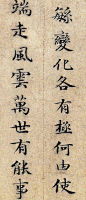 變化各有極何由使
端走風雲萬世有能事